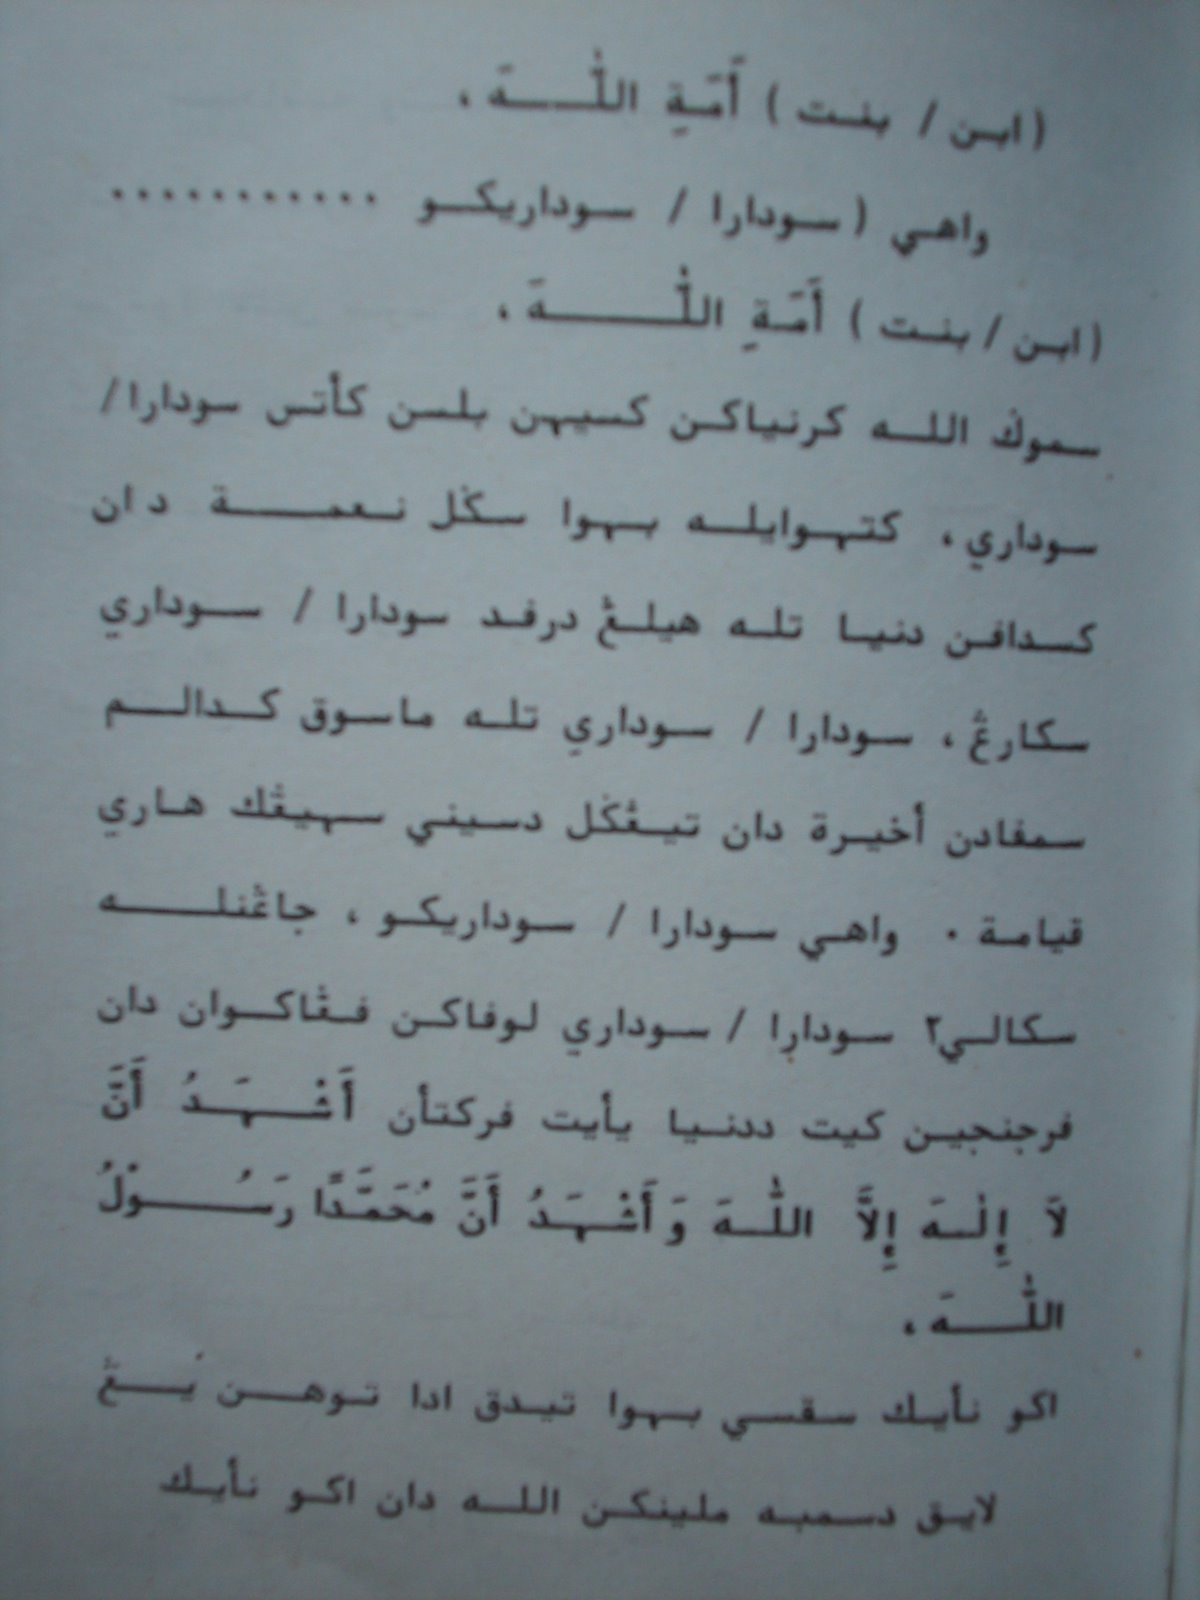 (ابن / بنت) أَمَةِ اللّٰهَ ،
واهي (سودارا / سوداريكو ...........
(ابن / بنت) أَمَةِ اللّٰهَ ،
سموݢ الله كرنياكن كسيهن بلسن كأتس سودارا/
سوداري، كتهوايله بهوا سݢل نعمة دان
كسدافن دنيا تله هيلڠ درفد سودارا / سوداري
سكارڠ، سودارا / سوداري تله ماسوق كدالم
سمفادن أخيرة دان تيڠݢل دسيني سهيڠݢ هاري
قيامة . واهي سودارا / سوداريكو ، جاڠنله
سكالي٢ سودارا / سوداري لوفاكن فڠاكوان دان
فرجنجين كيت ددنيا يأيت فركتأن أَشْهَدُ أَنَّ
لاَ إِلٰهَ إِلاَّ اللّٰهَ وَأَشْهَدُ أَنَّ مُحَمَّدًا رَسُوْلُ
اللّٰهَ ،
اكو نأيك سقسي بهوا تيدق ادا توهن يڠ
لايق دسمبه ملينكن الله دان اكو نأيك